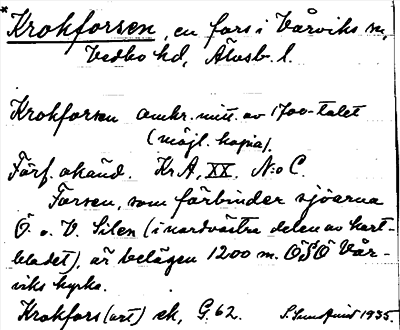 *Krokforsen, en fors i Vårviks sn,
Vedbo hd, Älvsb. l.
Krokforsen omkr. mitt. av 1700-talet
(möjl. kopia).
Förf. okänd. Kr.A, XX, N:o C.
Forsen, som förbinder sjöarna
Ö. o. V. Silen (i nordvästra delen av kart-
bladet), är belägen 1200 m. ÖSÖ Vår-
viks kyrka.
Krokfors (ort) ek, G. 62. S. 1935.